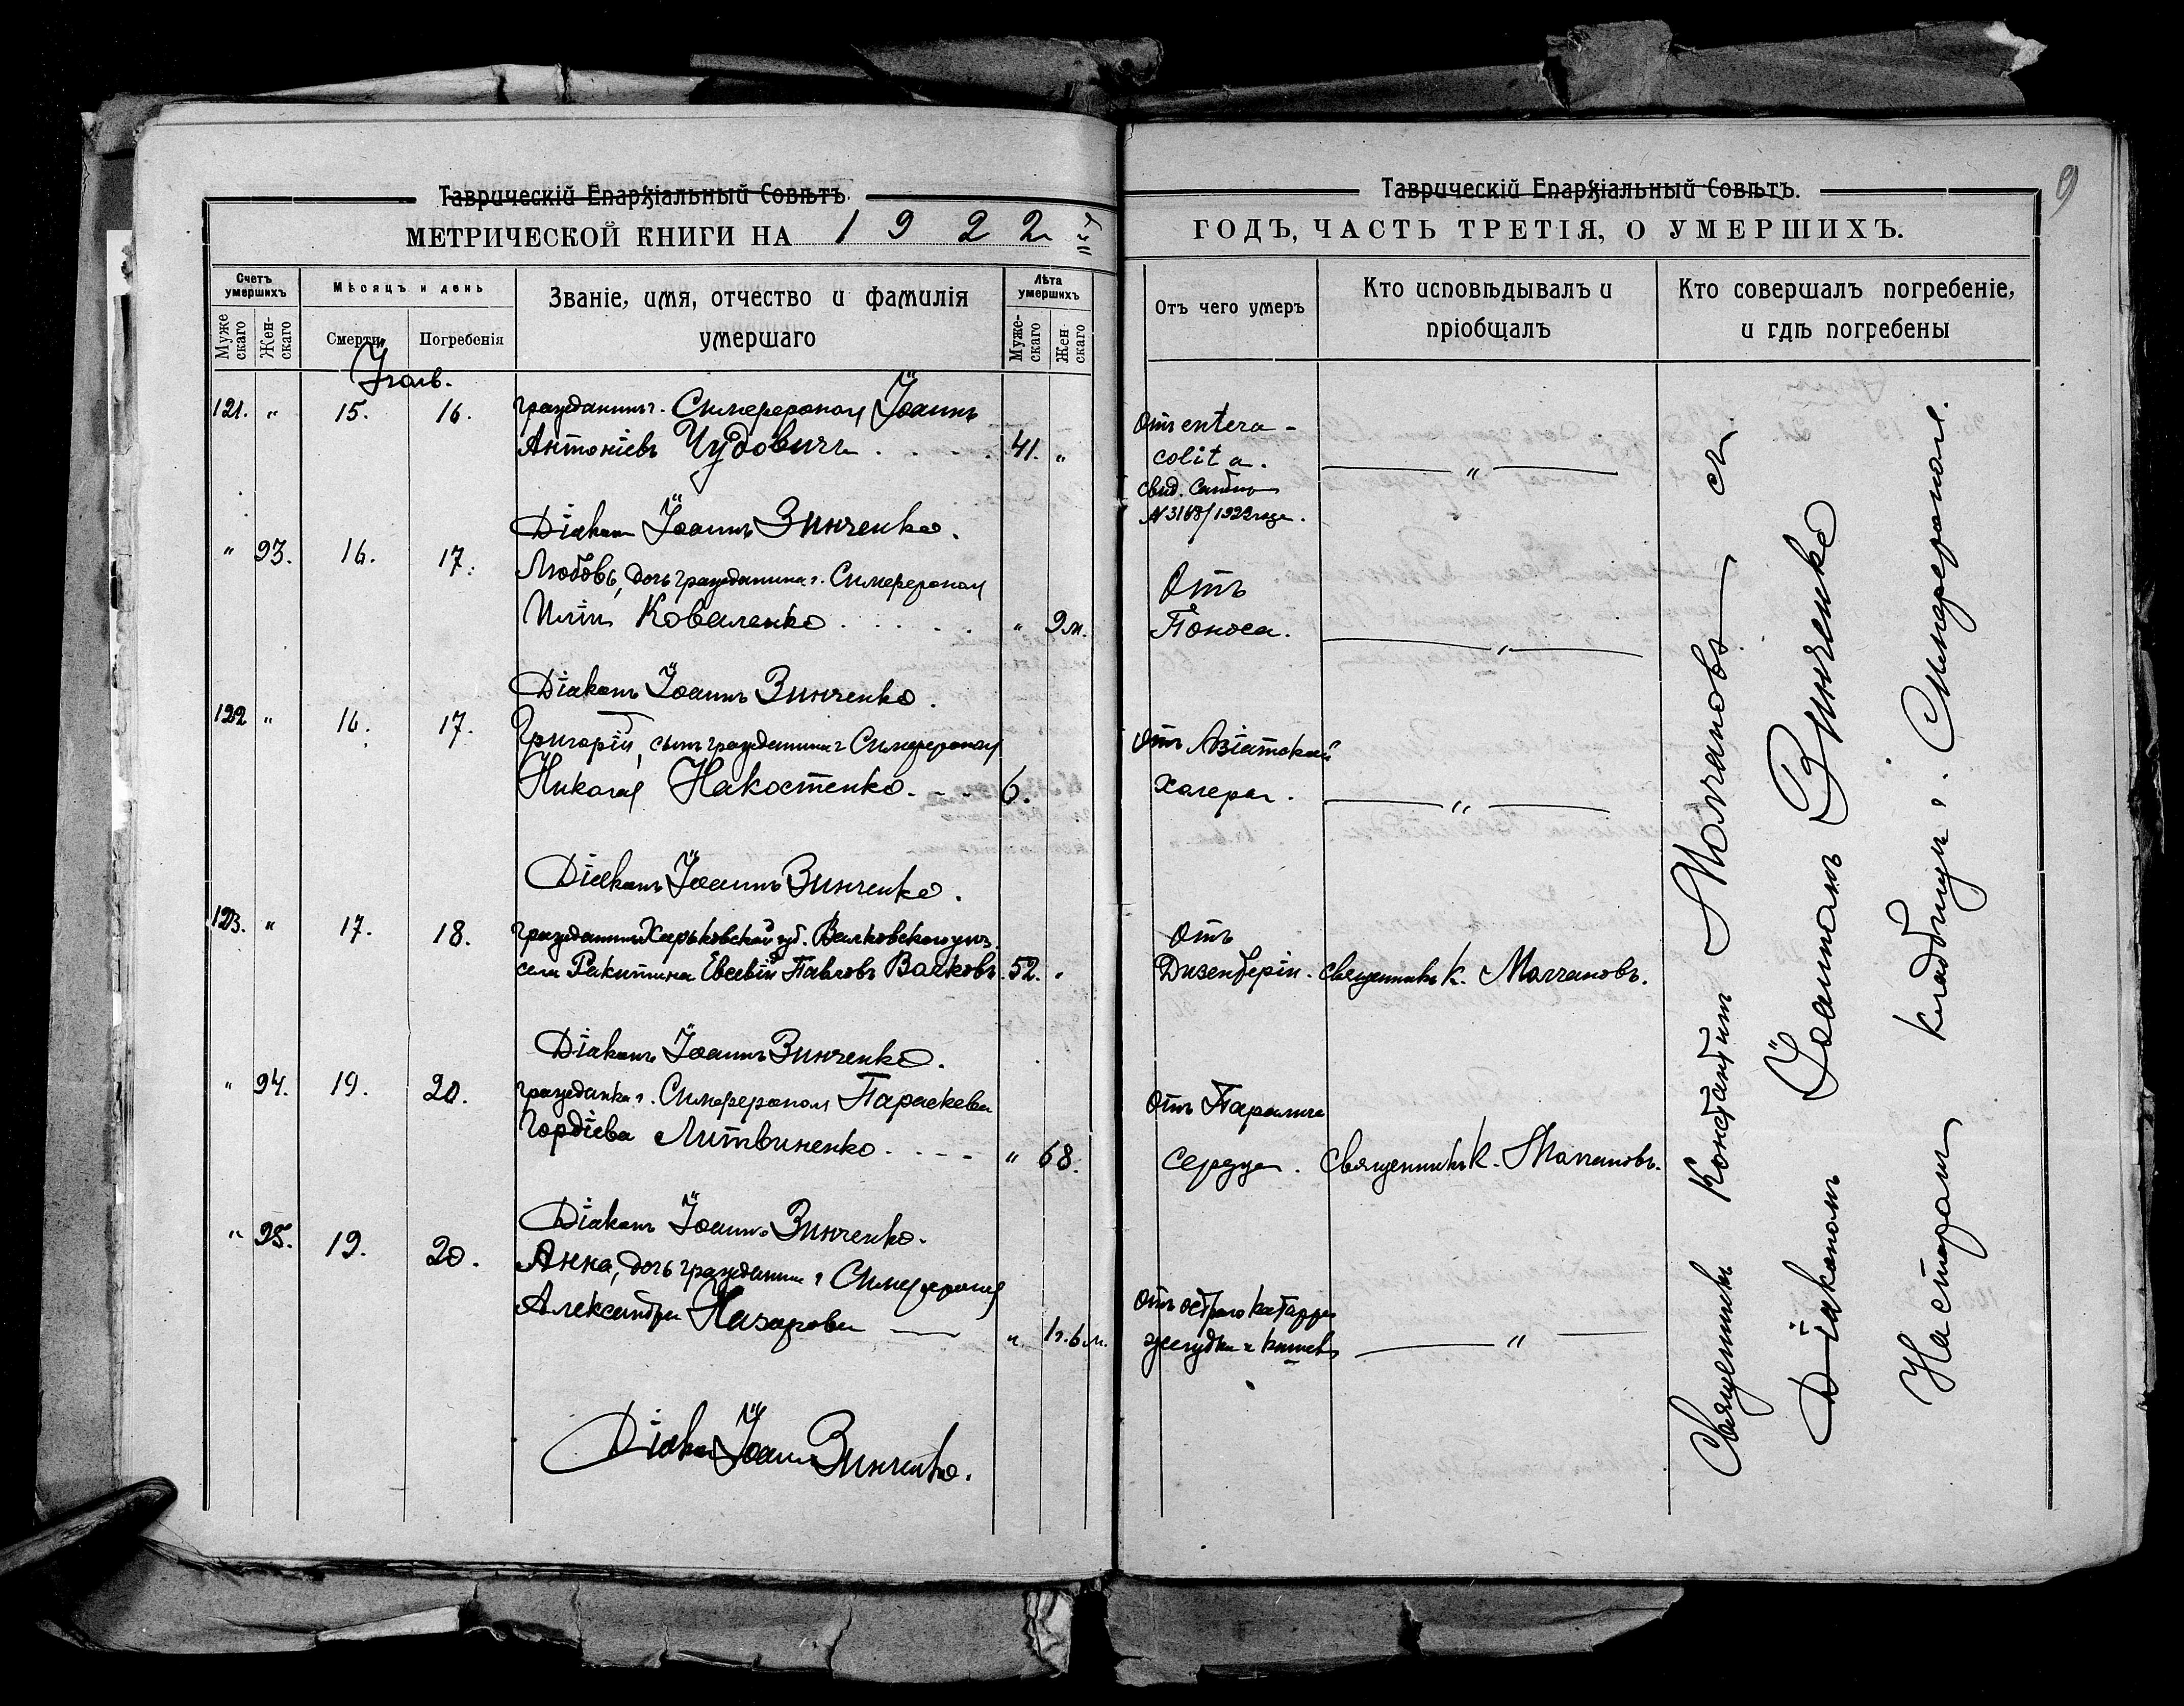 Таврическій Епархіальный Совѣтъ.
МЕТРИЧЕСКОЙ КНИГИ НА 1922й
Счетъ умершихъ
Мѣсяцъ и день
Званіе, имя, отчество и фамилія умершаго
Лѣта умершихъ
Мужескаго
Женскаго
Смерти
Погребенія
Мужескаго
Женскаго
Іюль.
121. " 15. 16. гражданинъ г. Симферополя Іоаннъ
Антоніевъ Чудовичъ . . . . . 41. "
Діаконъ Іоаннъ Зинченко.
" 93. 16. 17. Любовь, дочь гражданина г. Симферополя
Иліи Коваленко . . . . . " 9 м.
Діаконъ Іоаннъ Зинченко.
122 " 16. 17. Григорій, сынъ гражданина г Симферополя
Николая Накостенко. - - 6.
Діаконъ Іоаннъ Зинченко.
123. " 17. 18. гражданинъ Харьковской губ. Валковского уез.
села Ракитина Евсевій Павловъ Волковъ. 52. "
Діаконъ Іоаннъ Зинченко.
" 94. 19. 20. гражданка г. Симферополя Параскева
Гордіева Литвиненко. - - - - " 68.
Діаконъ Іоаннъ Зинченко.
" 95. 19. 20. Анна, дочь гражданина г Симферополя
Александра Назарова — " 1 г. 6 м.
Діаконъ Іоаннъ Зинченко.
9
Таврическій Епархіальный Совѣтъ.
ГОДЪ, ЧАСТЬ ТРЕТІЯ, О УМЕРШИХЪ.
Отъ чего умеръ
Кто исповѣдывалъ и пріобщалъ
Кто совершалъ погребеніе, и гдѣ погребены
Отъ entero-
colit а. — " —
свид.
N 3168/1922 года.
Отъ
Поноса. — " —
Отъ Азіатской
Холеры. — " —
Отъ
Дизентеріи. священникъ К. Молчановъ.
Отъ Паралича
Сердца. Священникъ К. Молчановъ.
Отъ острого катарра
желудка и кишекъ — " —
Священникъ Константинъ Молчановъ — съ
Діакономъ Іоанномъ Зинченко
На старомъ кладбищѣ г. Симферополя.